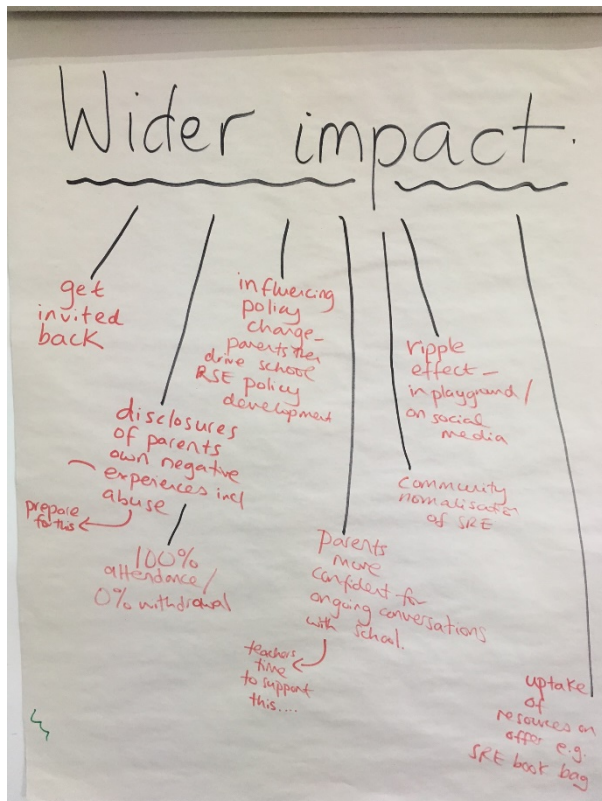 Wider impact.
get
invited
back
disclosures
of parents
own negative
experiences incl
abuse
prepare
for this
100%
attendance/
0% withdrawal
influencing
policy
change-
parents then
drive school
RSE policy
development
parents
more
confident for
ongoing conversations
with school.
teachers
time
to support
this....
community
normalisation
of SRE
ripple
effect-
in playground/
on social
media
uptake
of
resources on
offer e.g.
SRE book bag